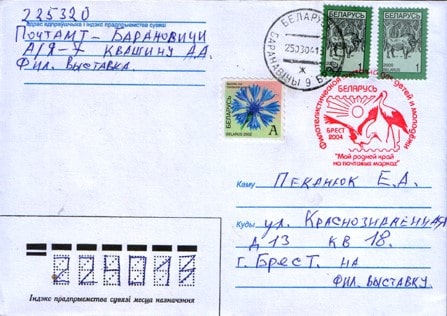 225320
Адрас адпраўшчыка і індэкс прадпрыемства сувязі
Почтамт - Барановичи
А/Я-7 Квашину А.А.
Фил. выставка
БЕЛАРУСЬ
250304
БАРАНАВІЧЫ 9
Ж
БЕЛАРУСЬ
1
БЕЛАРУСЬ
А
BELARUS 2002
Филателистическая детей и молодёжи
БЕЛАРУСЬ
БРЕСТ
2004
"Мой родной край
на почтовых марках"
Каму
Пеканюк Е.А.
Куды
ул. Краснознаменная
д 13 кв 18.
г. Брест. на
фил. выставку.
224013
Індэкс прадпрыемства сувязі месца назначэння